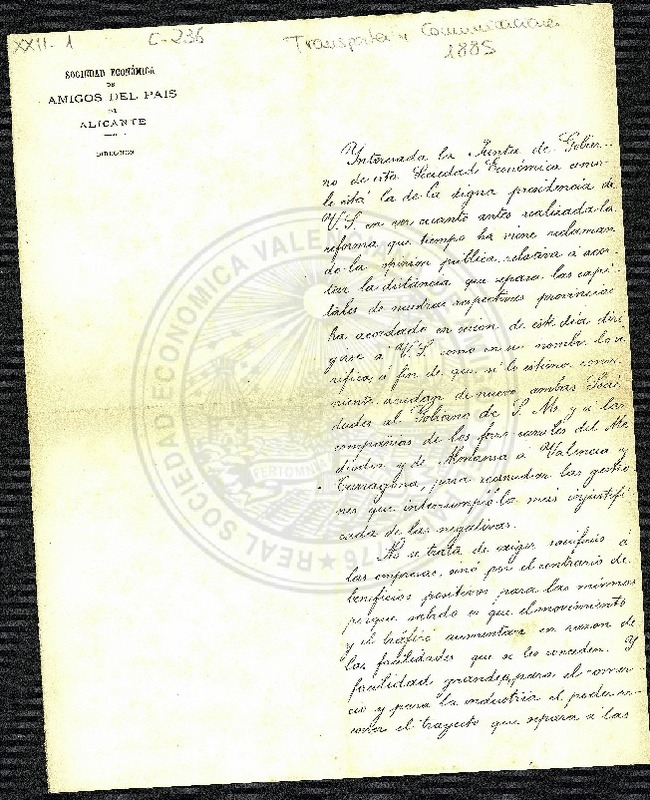 XXII-1
C-236
Transportes y Comunicaciones
1885
SOCIEDAD ECONÓMICA
DE
AMIGOS DEL PAIS
DE
ALICANTE
Interesada la Junta de Gobier-
no de esta Sociedad Económica como
lo está la de la digna presidencia de
V.S. en ver cuanto antes realizada la
reforma que tiempo ha viene reclaman
do la opinion pública, relativa á acor
tar la distáncia que separa las capi-
tales de nuestras respectivas provincias
ha acordado en sesion de este dia diri
girse á V.S. como en su nombre lo ve
rifico, á fin de que, si lo estima conve
niente acudan de nuevo ambas Socie
dades al Gobierno de S. M. y a las
compañias de los ferro-carriles del Me
diodia y de Almansa á Valencia y
Tarragona, para reanudar las gestio
nes que interrumpió la mas injustifi
cada de las negativas.
No se trata de exigir sacrificios á
las empresas, sinó por el contrario de
beneficios positivos para las mismas
porque sabido es que el movimiento
y el tráfico aumentan en razon de
las facilidades que se les conceden. Y
facilidad grande es, para el comer-
cio y para la industria el poder re-
correr el trayecto que separa a las
REAL SOCIEDAD ECONOMICA VALENCIANA
1776